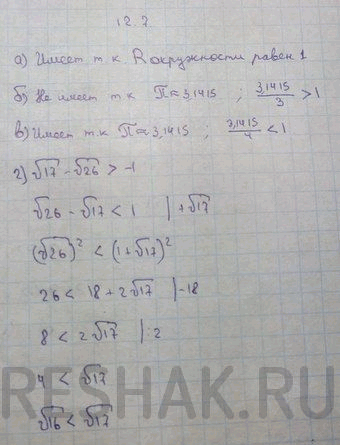 12.7
а) Имеет т.к. R окружности равен 1
б) Не имеет т.к П≈3,1415 ; 3,1415/3 >1
в) Имеет т.к П≈3,1415 ; 3,1415/4 <1
г) √17 - √26 > -1
√26 - √17 < 1 | +√17
(√26)² < (1+√17)²
26 < 18 + 2√17 | -18
8 < 2√17 | :2
4 < √17
√16 < √17
RESHAK.RU